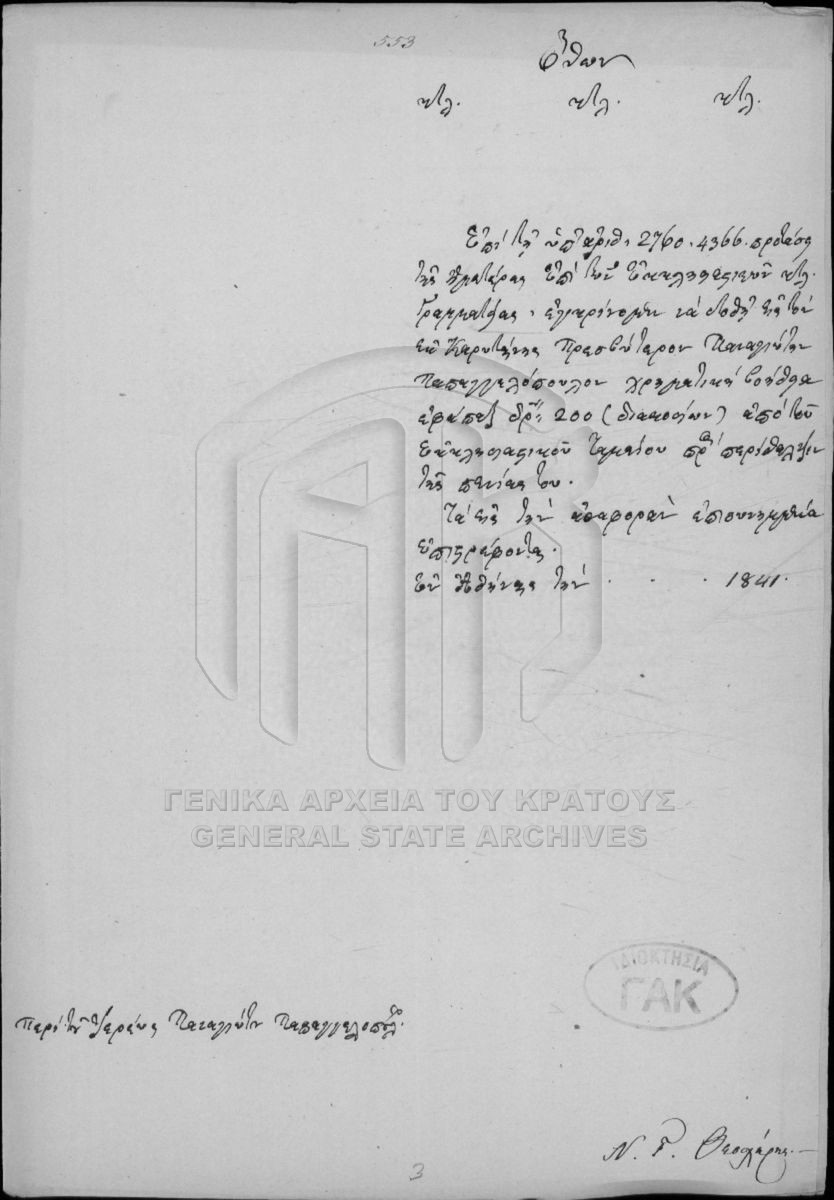 553
Ὄθων
κτλ. κτλ. κτλ.
Ἐπὶ τῇ ὑπ' ἀριθ. 2760. 4366. προτάσει
τῆς ἡμετέρας ἐπὶ τῶν Ἐκκλησιαστικῶν κτλ.
Γραμματείας, ἐγκρίνομεν νὰ δοθῇ εἰς τὸν
ἐκ Καρυταίνης Πρεσβύτερον Παναγιώτην
Παπαγγελόπουλον χρηματικὴ βοήθεια
ἐφάπαξ δρ. 200 (διακοσίων) ἀπὸ τοῦ
Ἐκκλησιαστικοῦ Ταμείου πρὸς περίθαλψιν
τῆς πενίας του.
Τὰ εἰς τὴν ἀναφορὰν ἐπισυνημμένα
ἐπιστρέφονται.
Ἐν Ἀθήναις τὴν . . . 1841.
ΓΕΝΙΚΑ ΑΡΧΕΙΑ ΤΟΥ ΚΡΑΤΟΥΣ
GENERAL STATE ARCHIVES
ΙΔΙΟΚΤΗΣΙΑ
ΓΑΚ
Περὶ τοῦ Ἱερέως Παναγιώτη Παπαγγελοπούλου.
Ν. Γ. Θεοχάρης
3